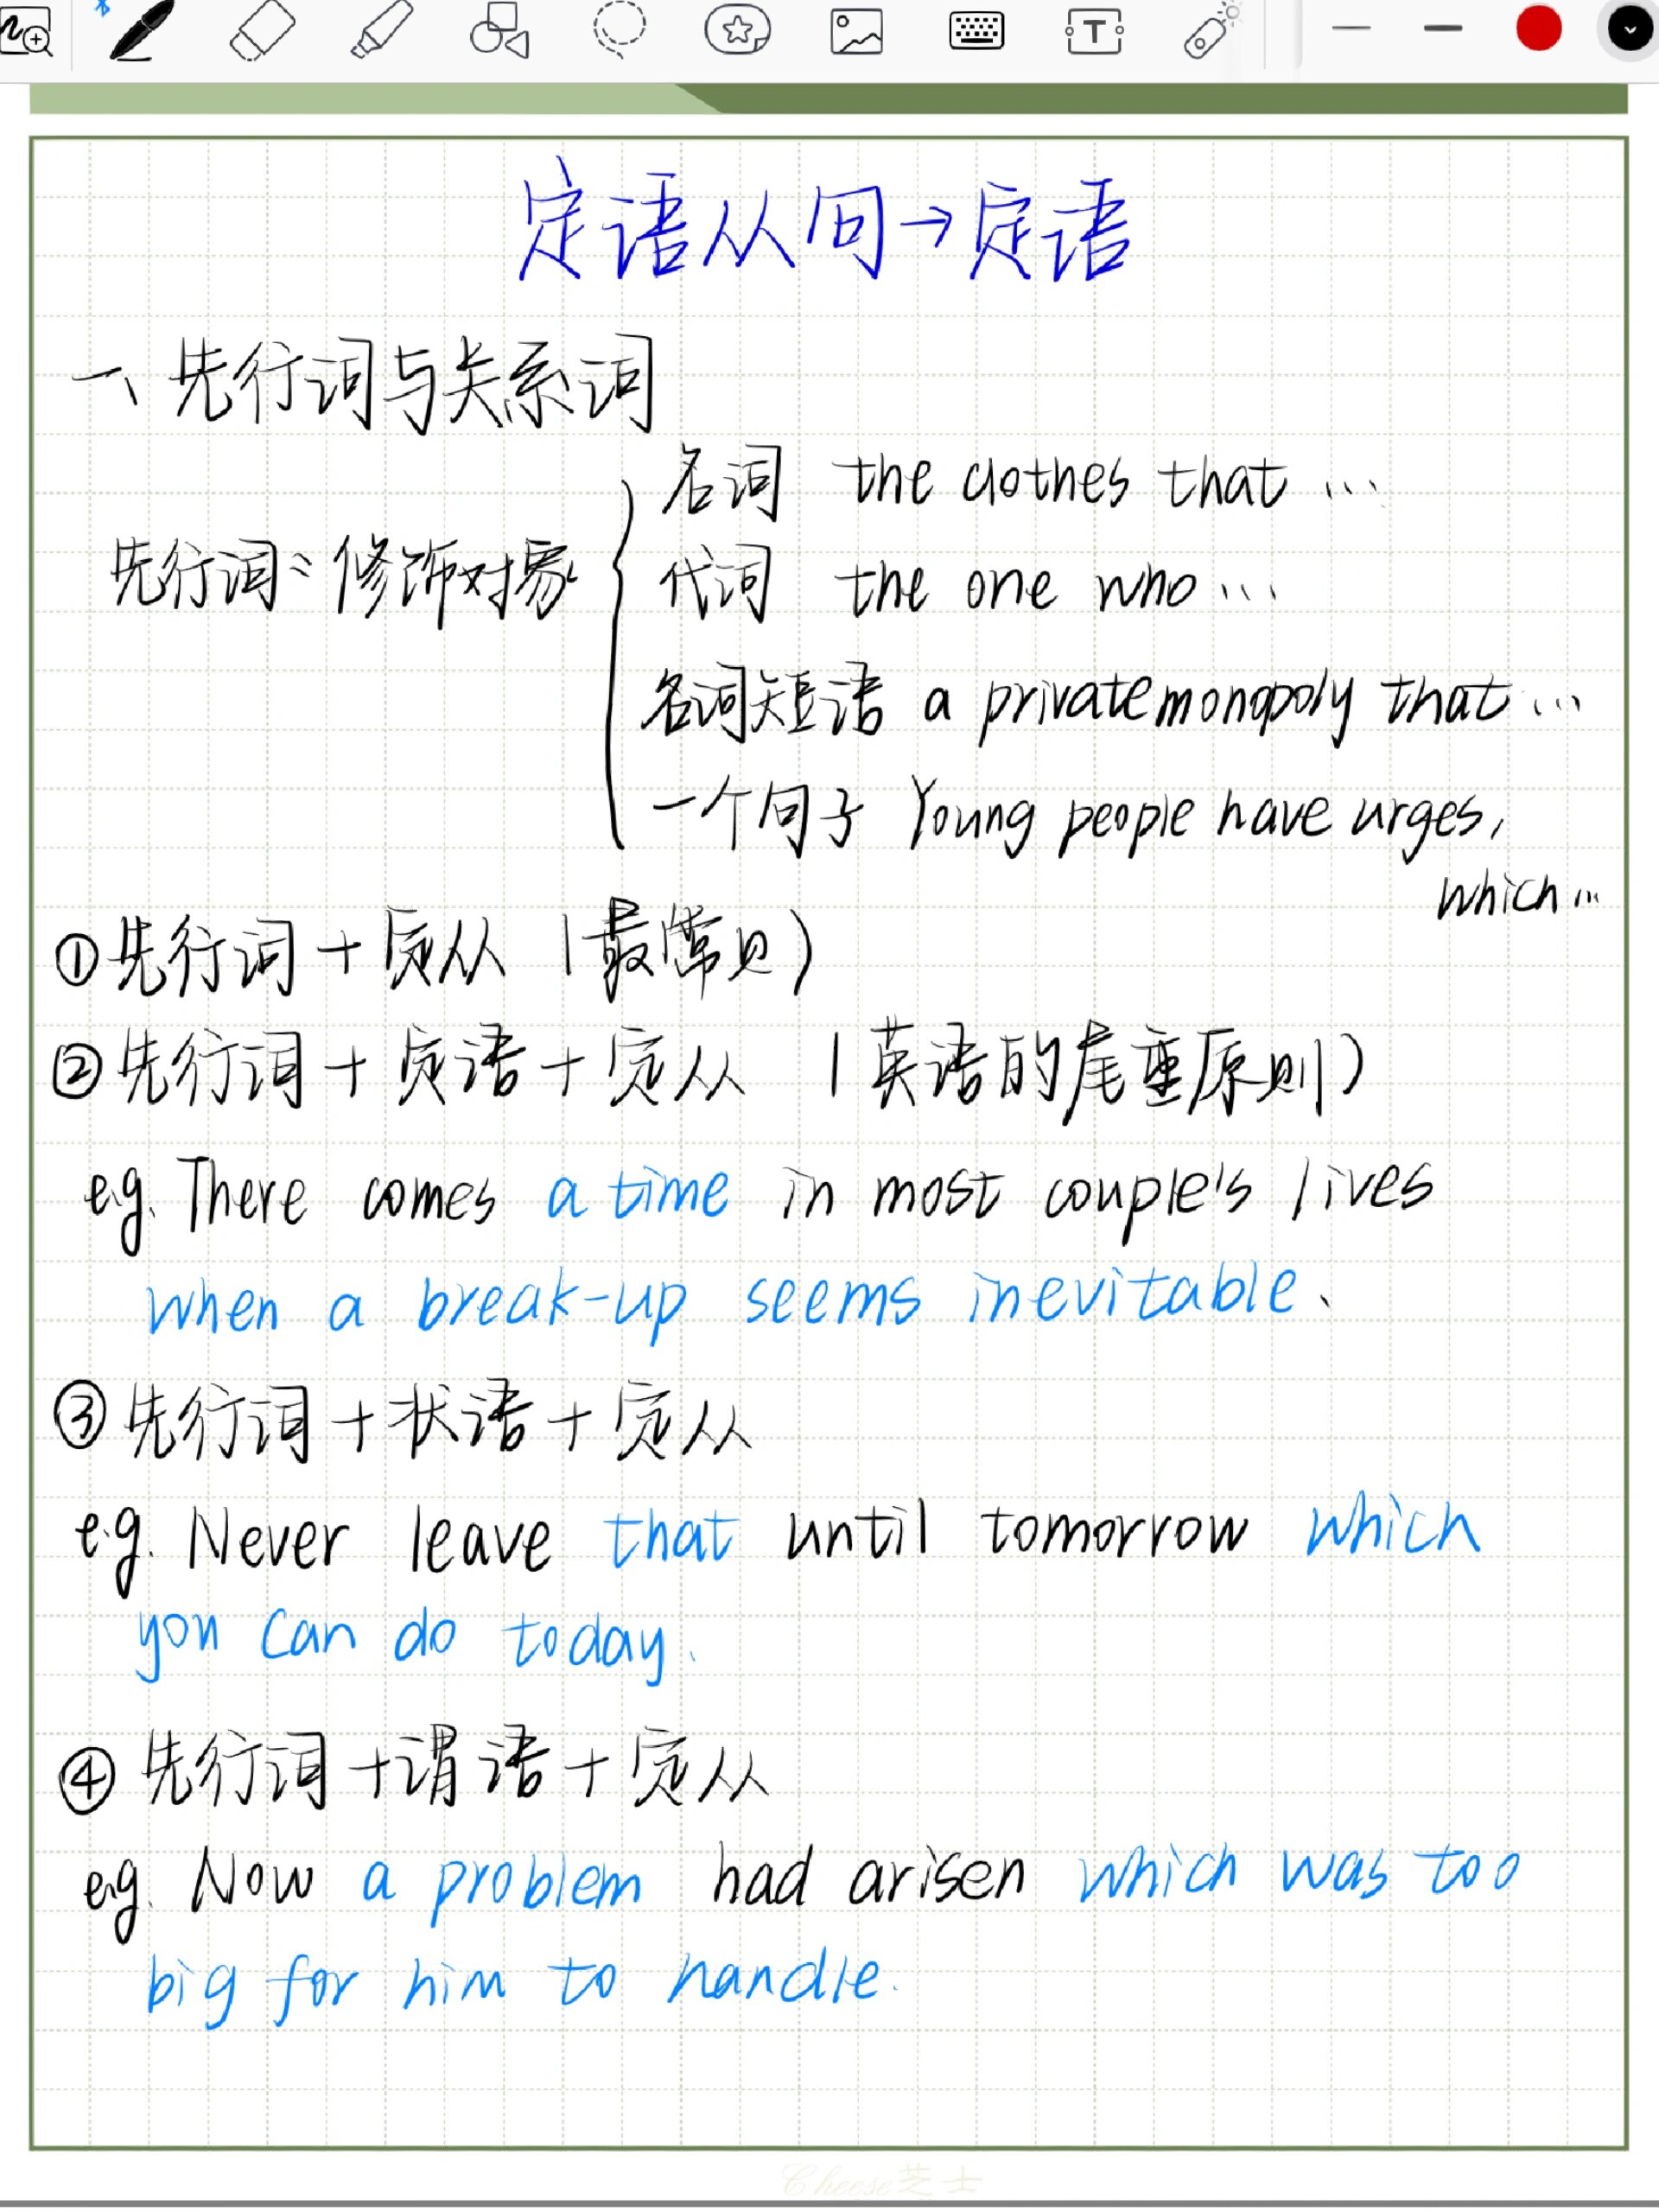 定语从句→定语
一、先行词与关系词
先行词：修饰对象
名词 the clothes that ...
代词 the one who ...
名词短语 a private monopoly that ...
一个句子 Young people have urges,
which ...
①先行词+定从（最常见）
②先行词+定语+定从（英语的尾重原则）
e.g. There comes a time in most couple's lives
when a break-up seems inevitable.
③先行词+状语+定从
e.g. Never leave that until tomorrow which
you can do today.
④先行词+谓语+定从
e.g. Now a problem had arisen which was too
big for him to handle.
Cheese芝士